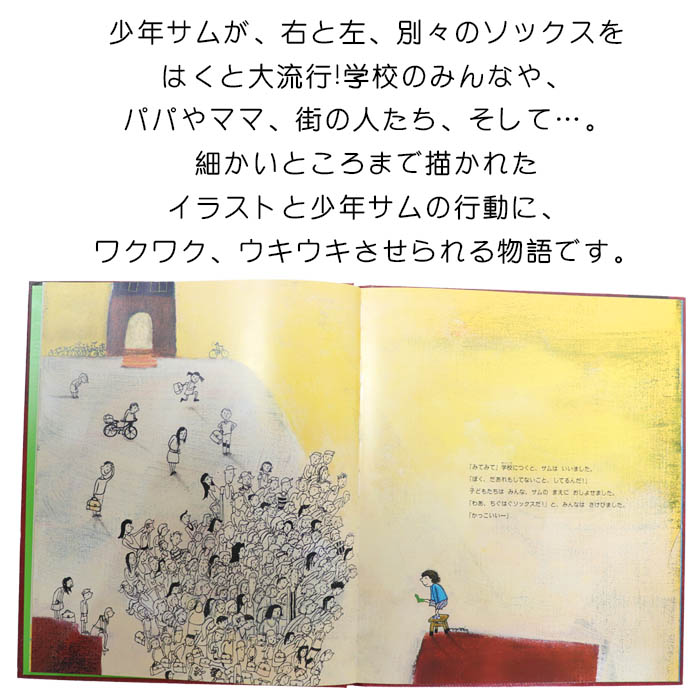 少年サムが、右と左、別々のソックスを
はくと大流行!学校のみんなや、
パパやママ、街の人たち、そして…。
細かいところまで描かれた
イラストと少年サムの行動に、
ワクワク、ウキウキさせられる物語です。
「みてみて」学校につくと、サムは いいました。
「ぼく、だあれもしてないこと、してるんだ！」
子どもたちは みんな、サムの まえに おしよせました。
「わあ、ちぐはぐソックスだ！」と、みんなは さけびました。
「かっこいい〜」